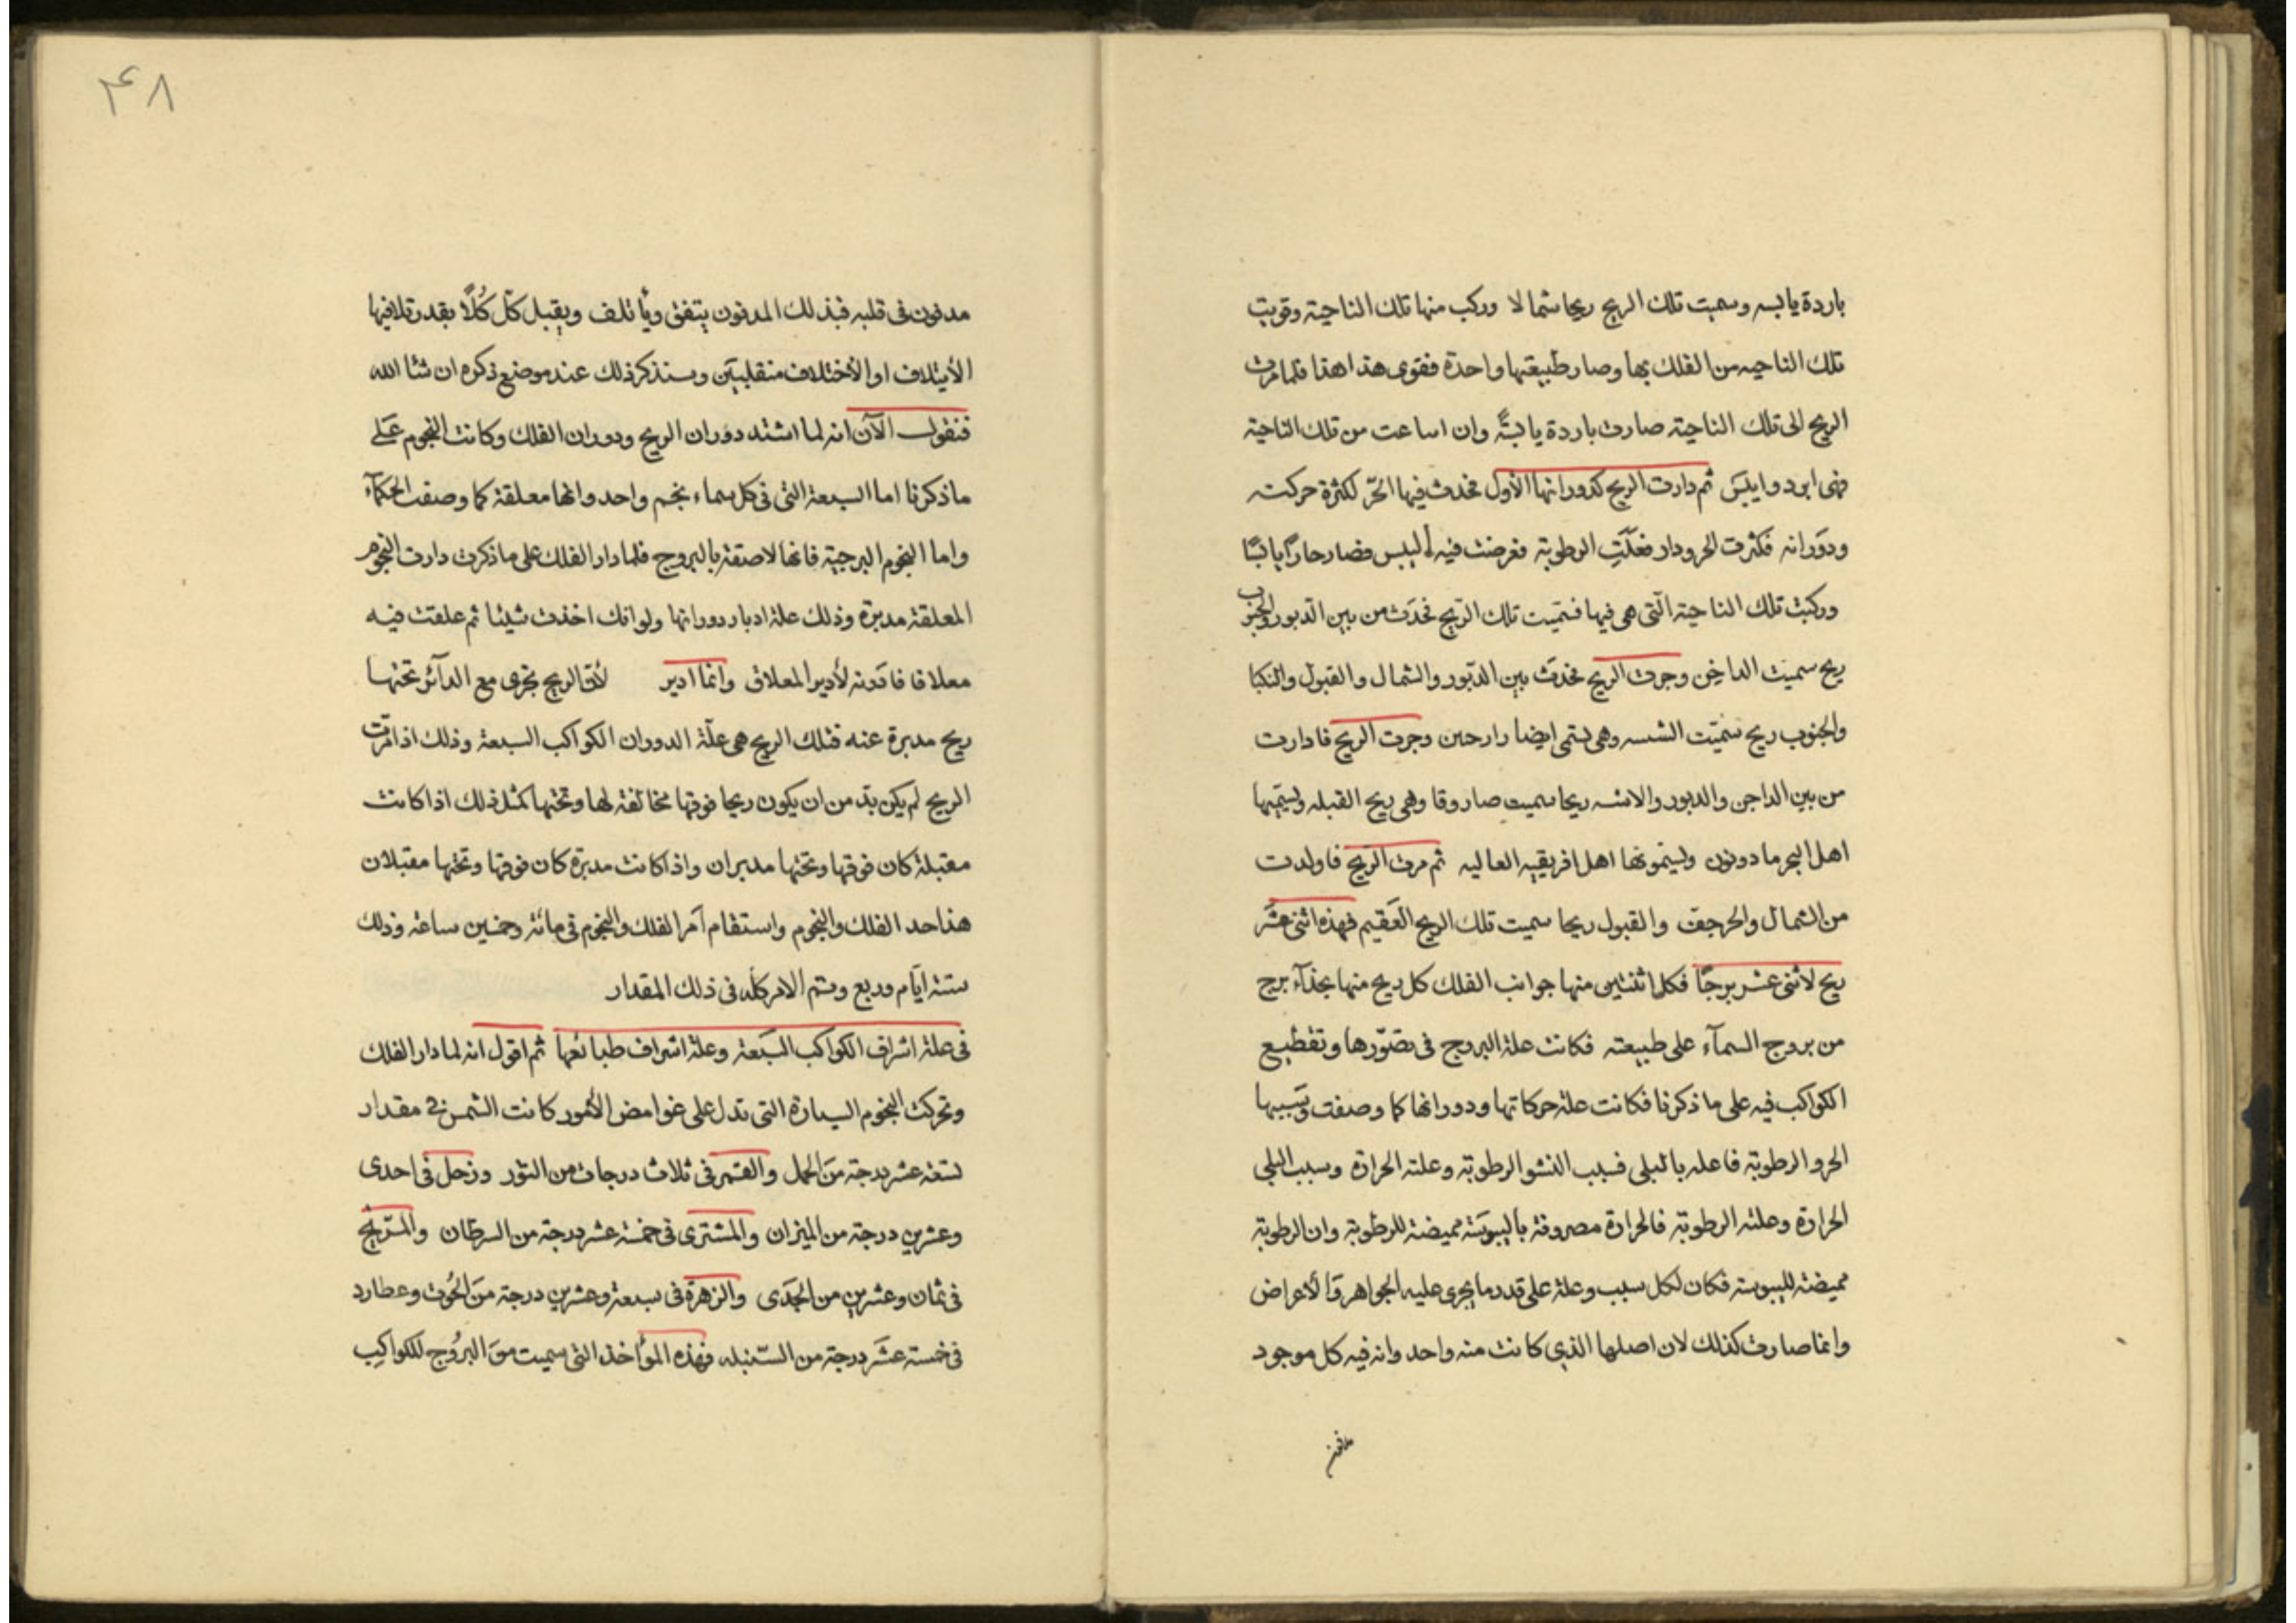 باردة يابسه وسميت تلك الريح ريحا شمالا وركب منها تلك الناحية وقويت
تلك الناحيه من الفلك بها وصار طبيعتها واحدة فقوى هذا هذا فلما مرت
الريح الى تلك الناحية صارت باردة يابسةً وان اساعت من تلك الناحية
فهى ابرد وايبس ثم دارت الريح كدورانها الأول فحدث فيها الحرّ لكثرة حركته
ودوَرانه فكثرت الحر ودار فعلّت الرطوبة فعرضت فيه اليبس فصار حارًا يابسًا
وركبت تلك الناحية الّتى هى فيها فسمّيت تلك الرّيح فحدَث من بين الدّبور والجنوب
ريح سميت الداخن وجرت الريح فحدَث بين الدّبور والشمال والقبول والنكبا
والجنوب ريح سمّيت الشسه وهى تسمى ايضا وجرت الريح فادارت
من بين الداجن والدبور والانسه ريحا سميت صاروقا وهى ريح القبله ويسمّيها
اهل البحر مادونون ويسمونها اهل افريقيه العاليه ثم مرت الريح فاولدت
من الشمال والحرجف والقبول ريحا سميت تلك الريح العَقيم فهذه اثنى عشَر
ريح لاثنى عشر برجًا فكل اثنتين منها جوانب الفلك كل ريح منها بحذآء برج
من بروج السمآء على طبيعته فكانت علة البروج فى تصوّرها وتقطيع
الكواكب فيه على ما ذكرنا فكانت علة حركاتها ودورانها كما وصفت وبسببها
الحر والرطوبة فاعله بالبلى فسبب النشو الرطوبة وعلته الحرارة وسبب البلى
الحرارة وعلته الرطوبة فالحرارة مصروفة باليبوسَة مميضة للرطوبة وان الرطوبة
مميضة لليبوسة فكان لكل سبب وعلة على قدر ما يجرى عليه الجواهر وَالأعراض
وانما صارت كذلك لان اصلها الذى كانت منه واحد وانه فيه كل موجود
مدفون
۴۸
مدفون فى قلبه فبذلك المدفون يتفق ويأتلف ويقبل كلّ كُلًّا بقدر تلافيها
الأيتلاف او الأختلاف منقلبيَن وسنذكر ذلك عند موضع ذكره ان شا الله
فنقول الآن انه لما اشتد دوَران الريح ودوران الفلك وكانت النجوم عَلى
ما ذكرنا اما السبعة التى فى كل سماء نجم واحد وانها معلقة كما وصفت الحكمآء
واما النجوم البرجية فانها لاصقة بالبروج فلما دار الفلك على ما ذكرت دارت النجوم
المعلقة مدبرة وذلك علة ادبار دورانها ولو انك اخذت شيئا ثم علقت فيه
معلاقا فادَرته لأدير المعلاق وانما ادير لأن الريح تجرى مع الدآئر تحتها
ريح مدبرة عنه فتلك الريح هى علّة الدوران الكواكب السبعة وذلك اذا مرّت
الريح لم يكن بدّ من ان يكون ريحا فوقها مخالفة لها وتحتها كمثل ذلك اذا كانت
مقبلة كان فوقها وتحتها مدبران واذا كانت مدبرة كان فوقها وتحتها مقبلان
هذا حد الفلك والنجوم واستقام اَمر الفلك والنجوم فى مائة وخمسين ساعة وذلك
ستة ايّام وربع وستم الامر كلّه فى ذلك المقدار
فى علة اشراف الكواكب السبَعة وعلة اشراف طبائعها ثم اقول انه لما دار الفلك
وتحركت النجوم السيارة التى تدل على غوامض الأمور كانت الشمس فى مقدار
تسعة عشر درجة منَ الحمل والقمر فى ثلاث درجات من الثور وزحل فى احدى
وعشرين درجة من الميزان والمشترى فى خمسة عشر درجة من السرطان والمرّيخ
فى ثمان وعشرين من الجَدى والزهرة فى سبعة وعشرين درجة منَ الحُوت وعطارد
فى خمسة عشَر درجة من السّنبله فهذه المواخذ التى سميت منَ البرُوج للكواكِب